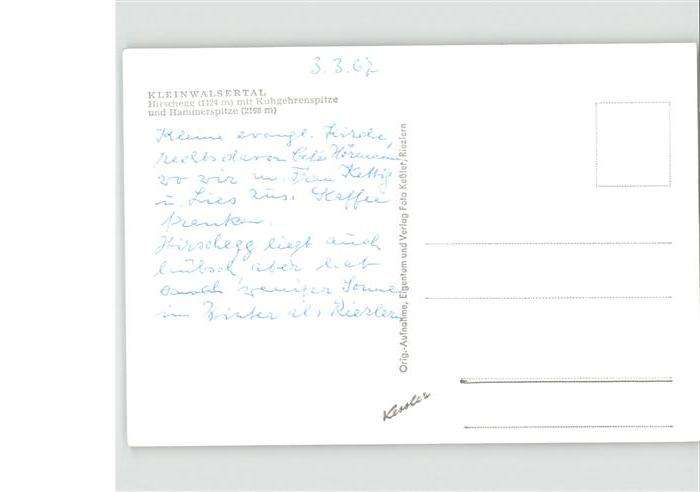 3.3.67
KLEINWALSERTAL
Hirschegg (1124 m) mit Kuhgehrenspitze
und Hammerspitze (2198 m)
Kleine evangl. Kirche,
rechts davon Cafe
wo wir m. Frau Kettig
u. Lies zus. Kaffee
tranken.
Hirschegg liegt auch
hübsch aber hat
weniger Sonne
im Winter als Riezlern
Orig.-Aufnahme, Eigentum und Verlag Foto Keßler, Riezlern
Kessler